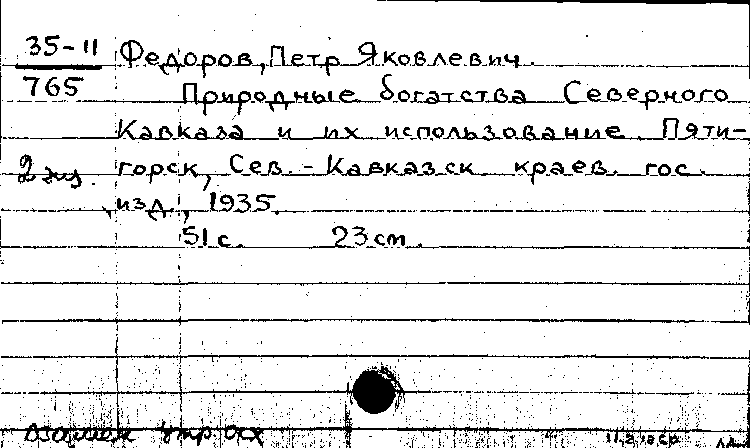 35-11
765
Федоров, Петр Яковлевич.
Природные богатства Северного
Кавказа и их использование. Пяти-
горск, Сев.-Кавказск. краев. гос.
изд., 1935.
2 экз.
51 с. 23 см.